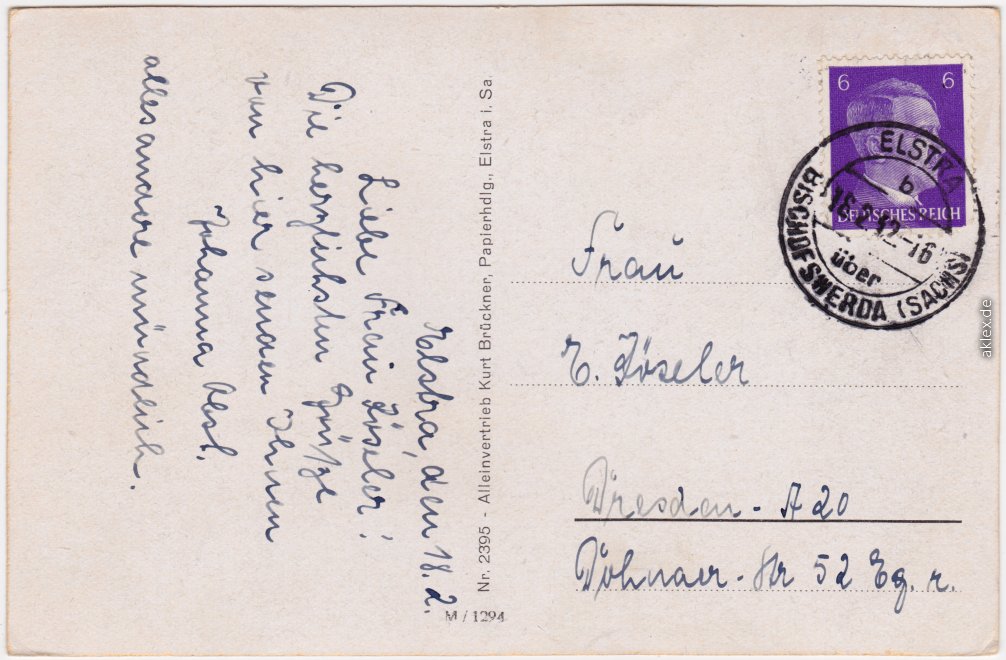 Elstra, den 18. 2.
Liebe Frau Löseler!
Die herzlichsten Grüße
von hier senden Ihnen
Johanna
alles andere mündlich.
Nr. 2395 - Alleinvertrieb Kurt Brückner, Papierhdlg., Elstra i. Sa.
M / 1294
6 6
DEUTSCHES REICH
ELSTRA
b
18.2.42-16
über
BISCHOFSWERDA (SACHS)
Frau
E. Löseler
Dresden - A 20
Dohnaer-Str 52 Eg. r.
aklex.de